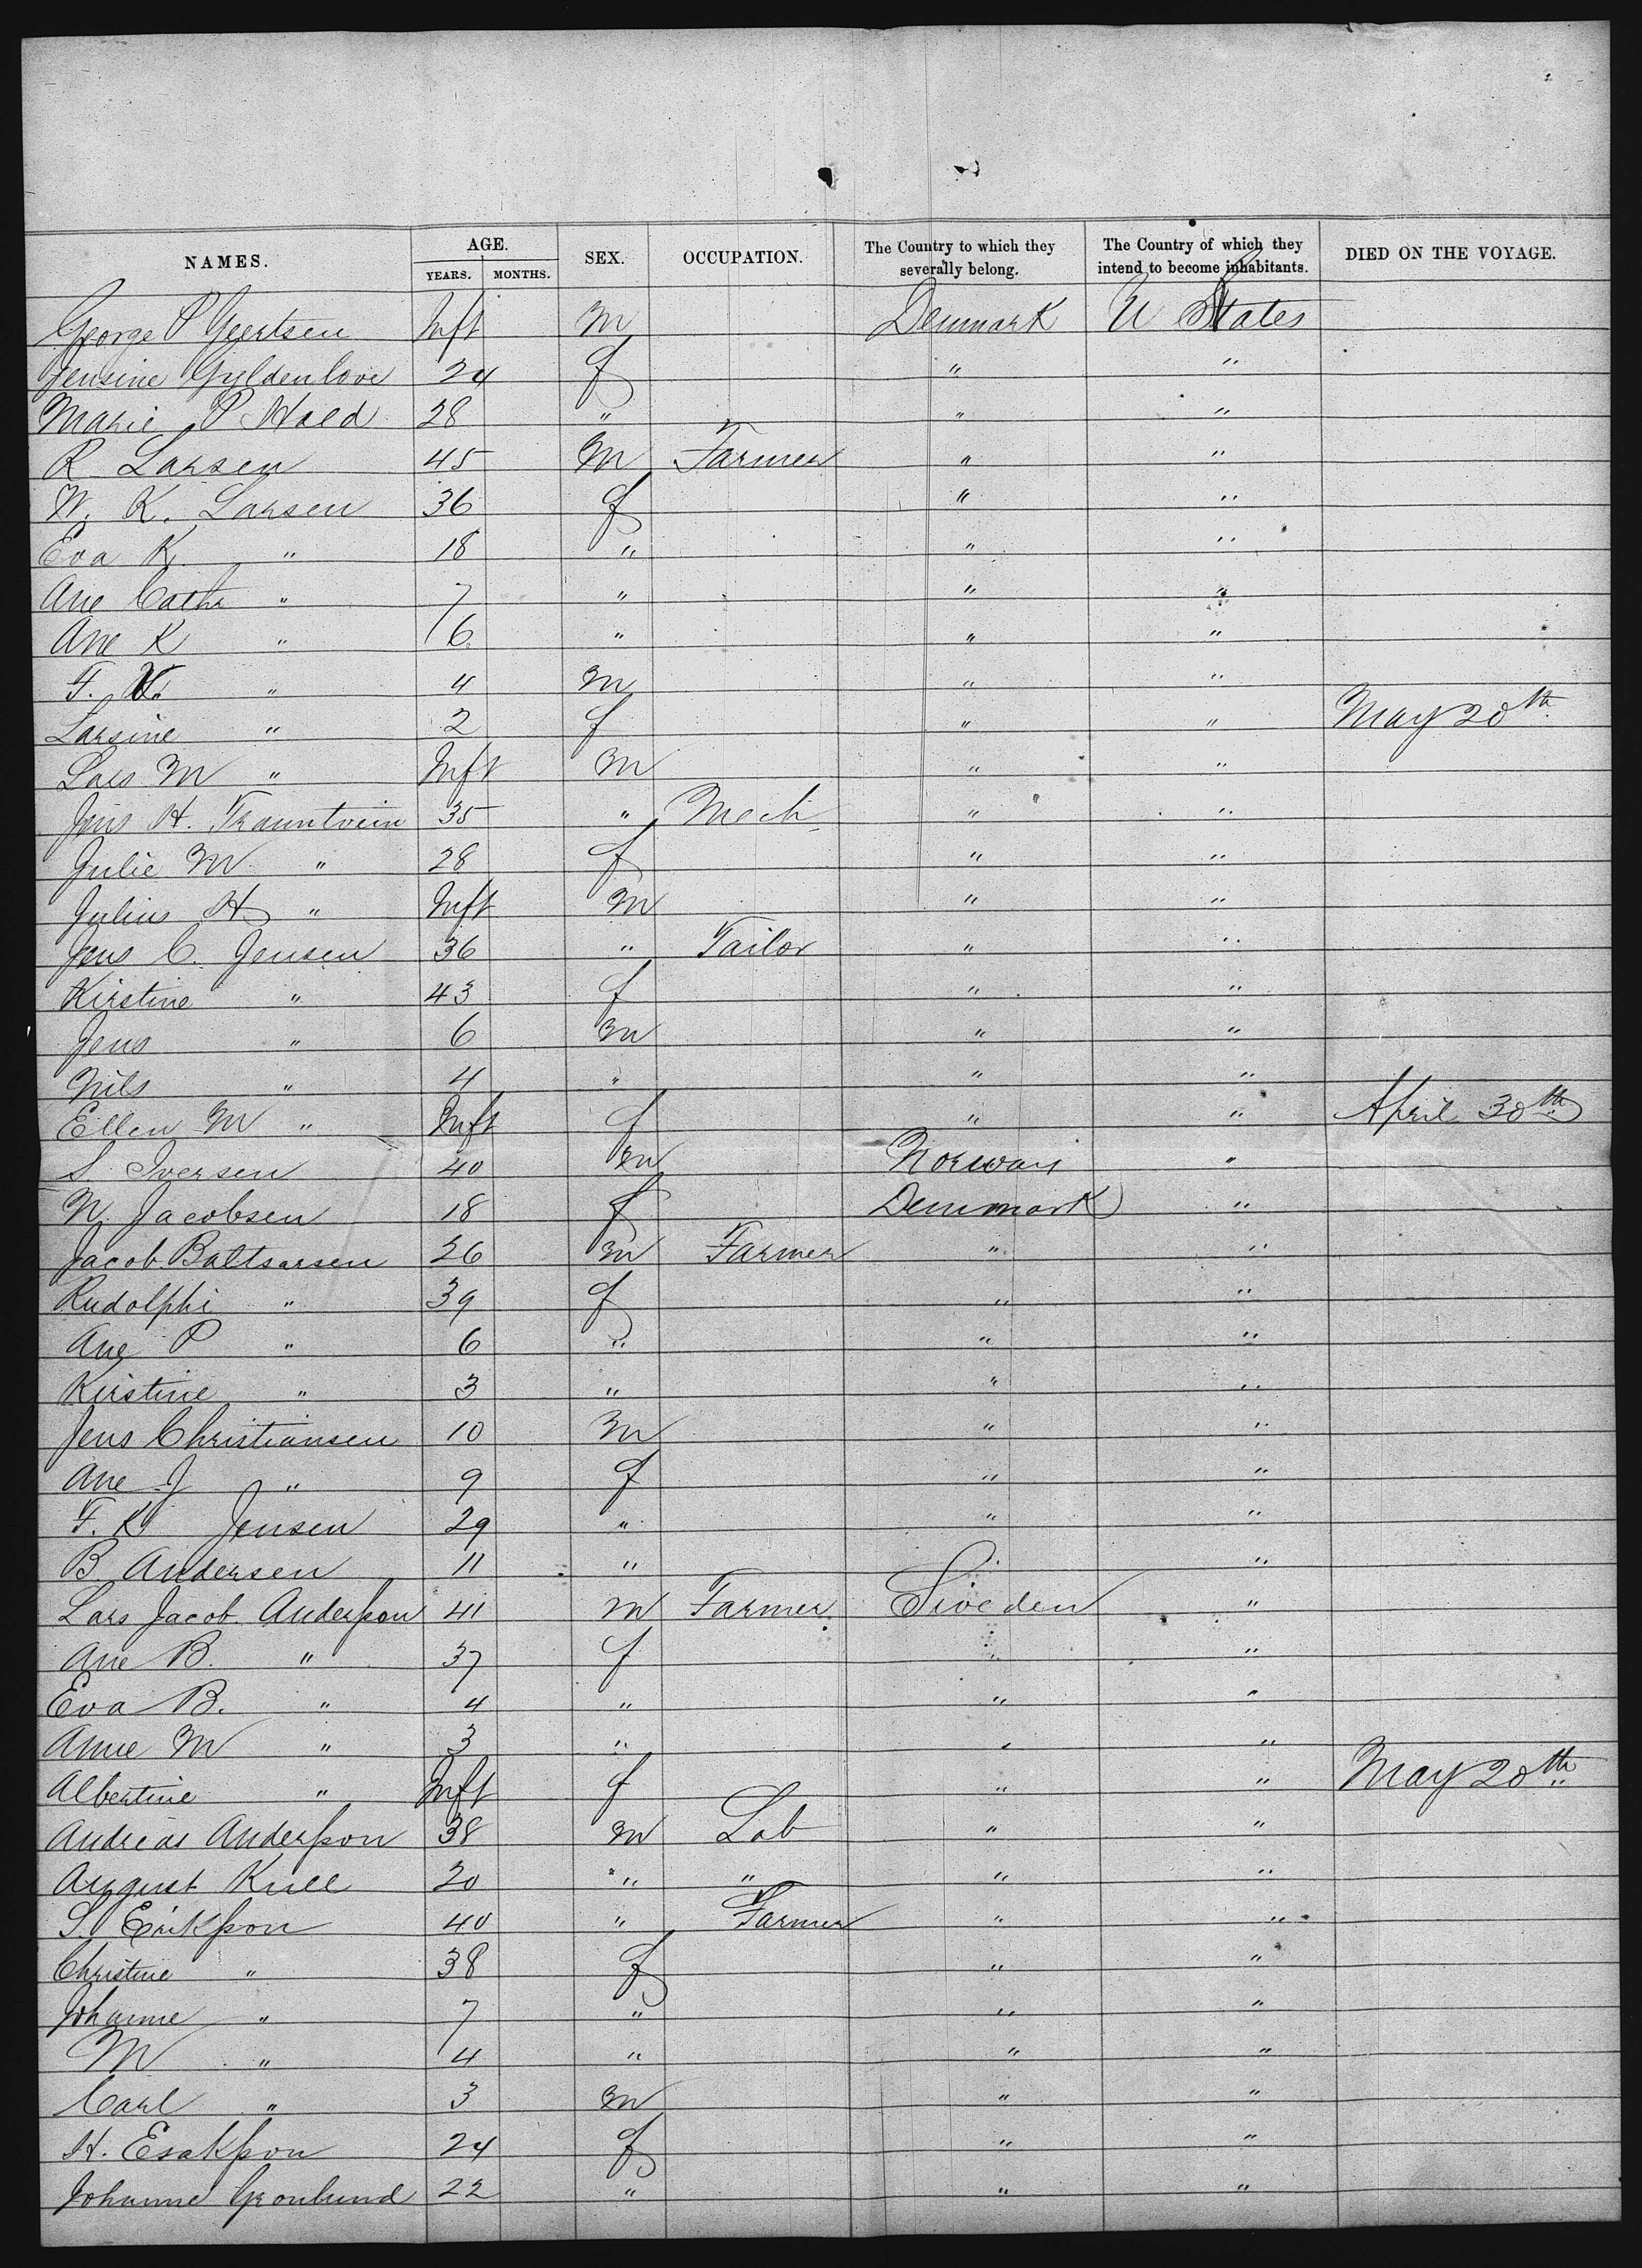 NAMES. AGE. SEX. OCCUPATION. The Country to which they severally belong. The Country of which they intend to become inhabitants. DIED ON THE VOYAGE.
YEARS. MONTHS.
George P Geertsen Inft m Denmark U States
Jensine Gyldenlove 24 f " "
Marie P Hald 28 " " "
R Larsen 45 m Farmer " "
W. K. Larsen 36 f " "
Eva K. " 18 " " "
Ane Cathr " 7 " " "
Ane K " 6 " " "
F. " 4 m " "
Larsine " 2 f " " May 20th
Lars M " Inft m " "
Jens H. Trauntvein 35 " Mech " "
Julie M " 28 f " "
Julius H " Inft m " "
Jens C. Jensen 36 " Tailor " "
Kirstine " 43 f " "
Jens " 6 m " "
Nils " 4 " " "
Ellen M " Inft f " " April 30th
S. Iversen 40 m Norway "
N. Jacobsen 18 f Denmark "
Jacob Baltsarsen 26 m Farmer " "
Rudolphi " 39 f " "
Ane P " 6 " " "
Kirstine " 3 " " "
Jens Christiansen 10 m " "
Ane J " 9 f " "
F. K Jensen 29 " " "
B. Andersen 11 " " "
Lars Jacob Andersson 41 m Farmer Sweden "
Ane B. " 37 f " "
Eva B. " 4 " " "
Anne M " 3 " " "
Albertine " Inft f " " May 20th
Andreas Andersson 38 m Lab " "
August Krell 20 " " " "
S. Eriksson 40 " Farmer " "
Christine " 38 f " "
Johanne " 7 " " "
M " 4 " " "
Carl " 3 m " "
H. Esaksson 24 f " "
Johanne Gronlund 22 " " "